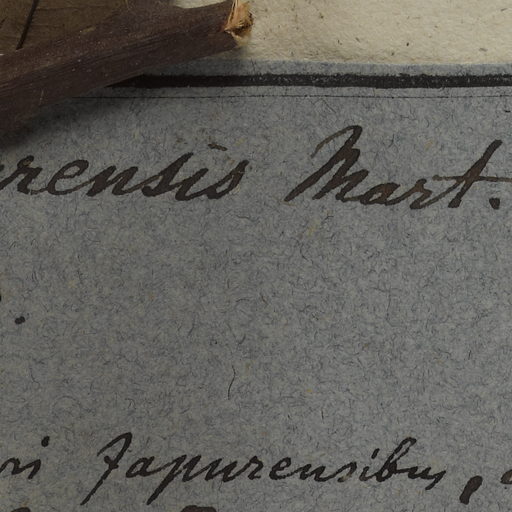 urensis Mart.
ri Japurensibus,